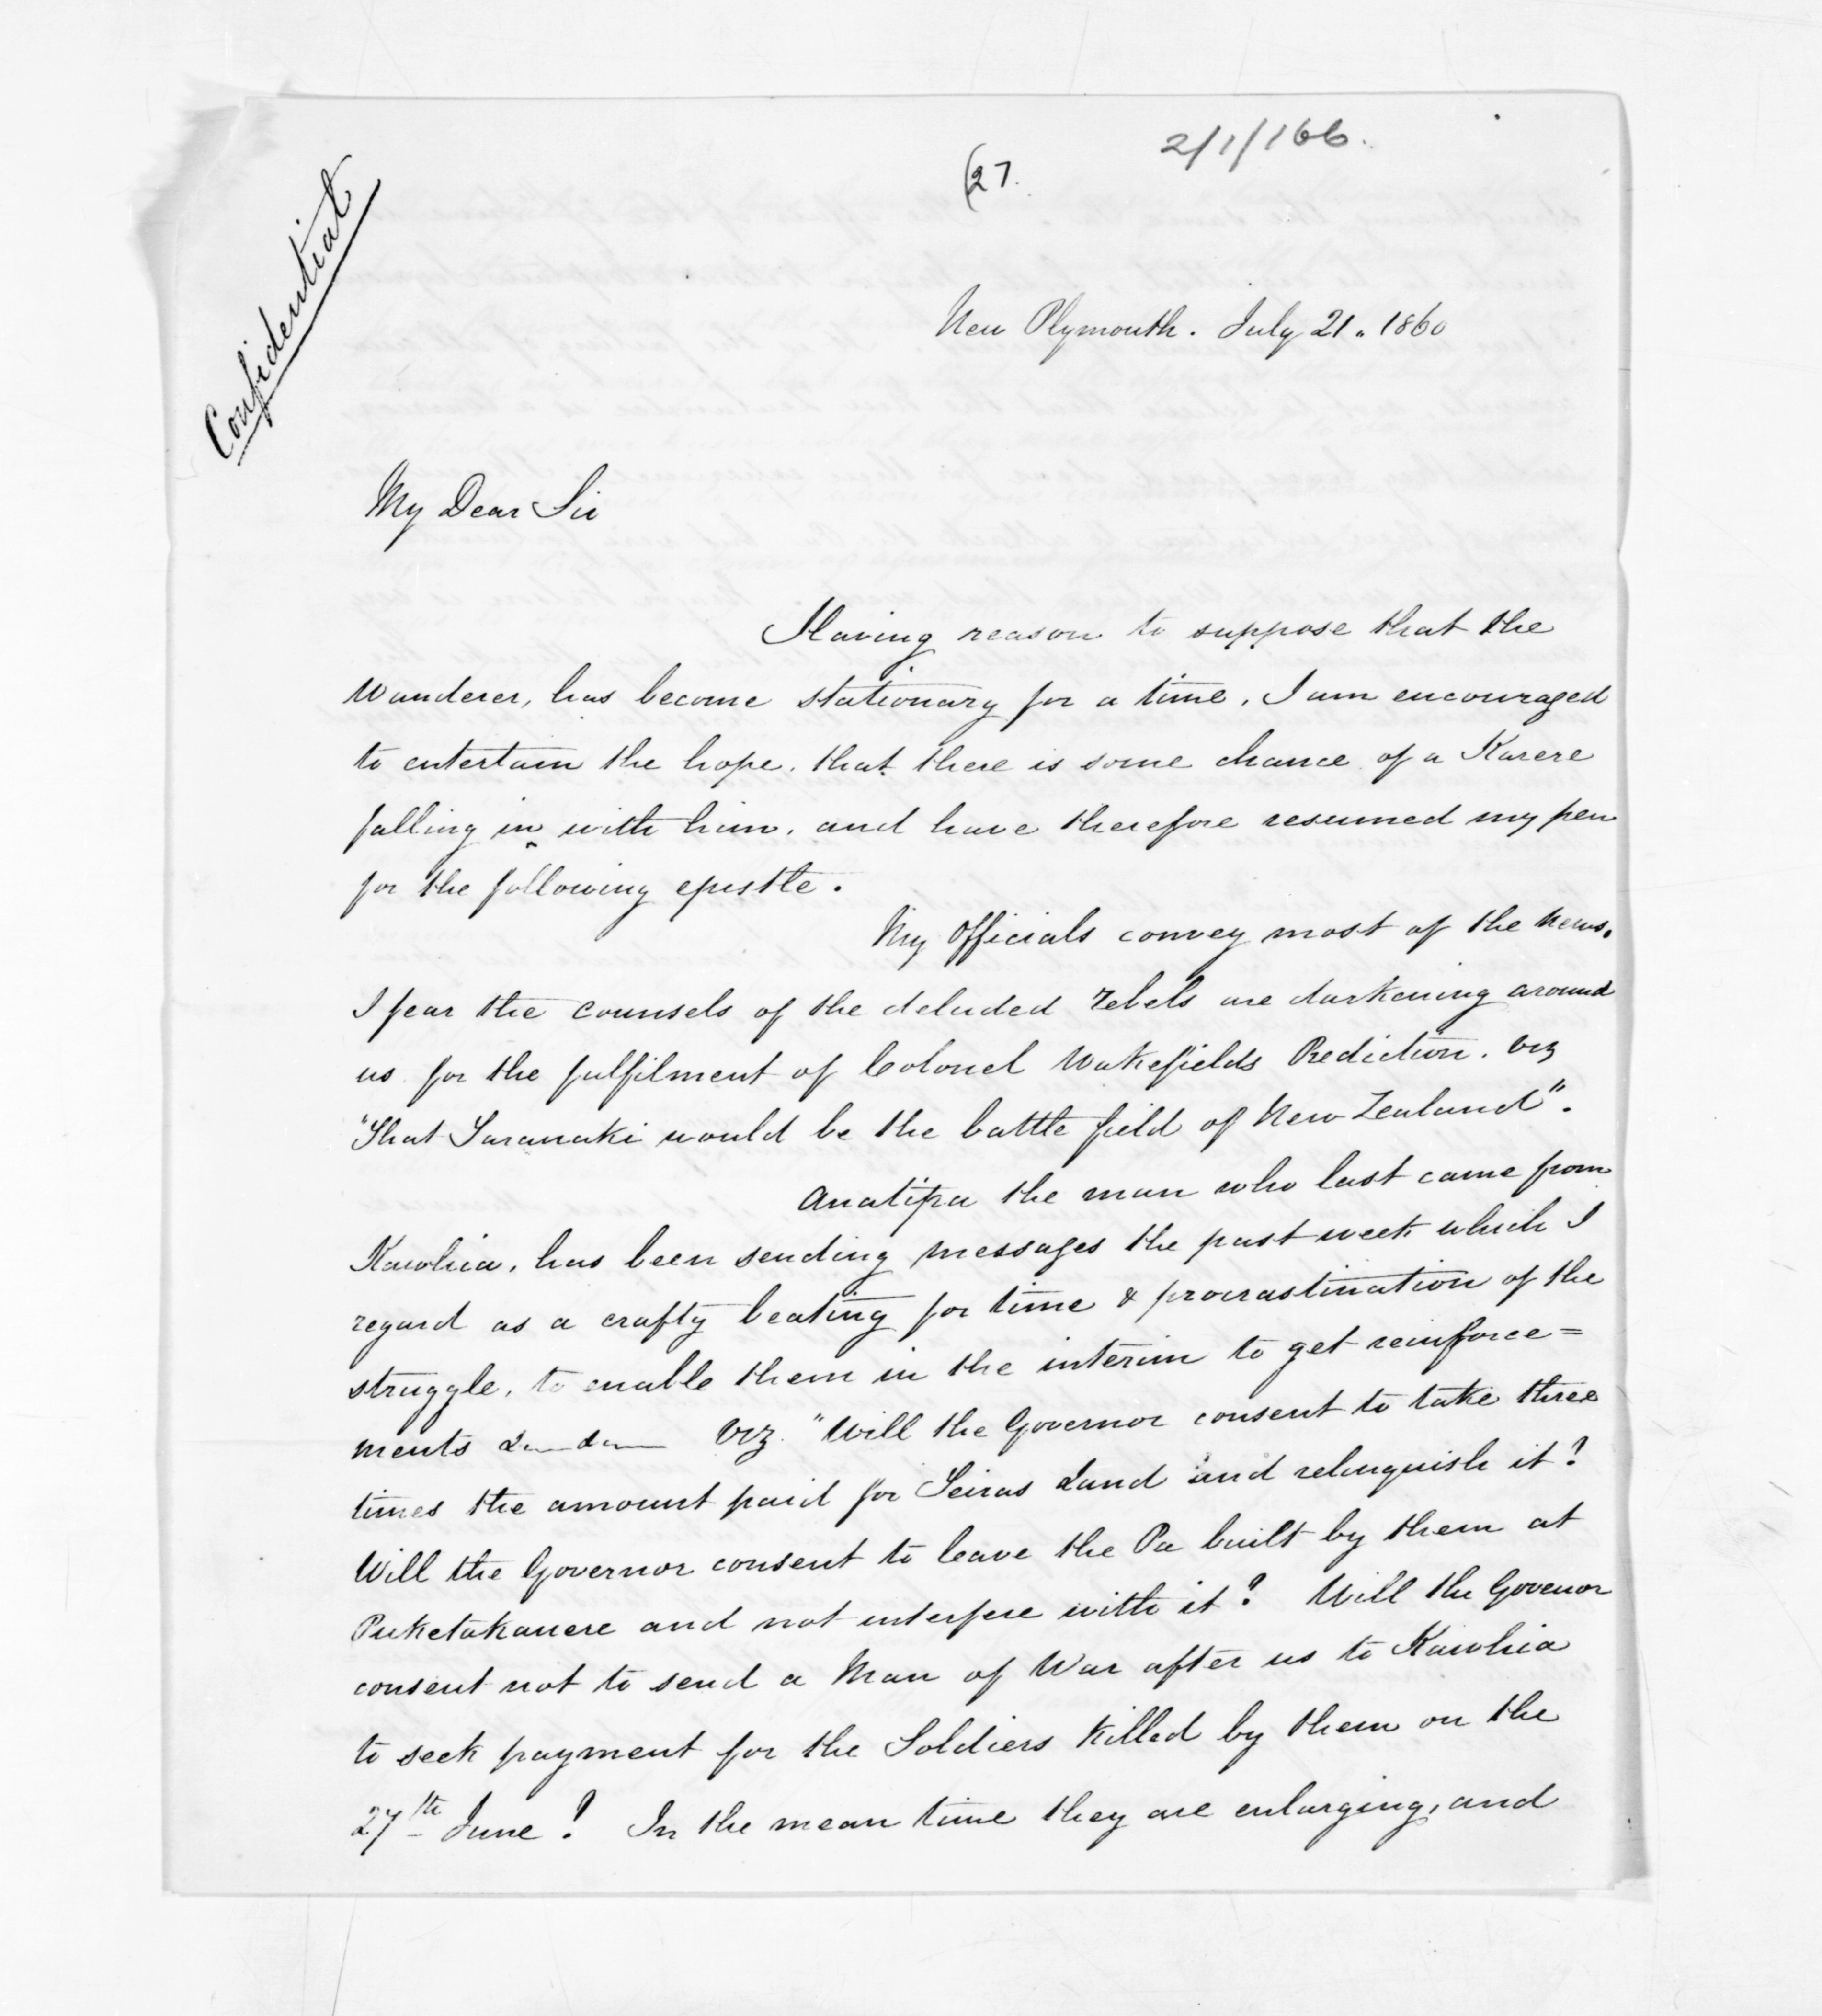 2/1/166.
(27.
Confidential
New Plymouth. July 21. 1860
My Dear Sir
Having reason to suppose that the
Wanderer, has become stationary for a time, I am encouraged
to entertain the hope, that there is some chance of a Karere
falling in with him, and have therefore resumed my pen
for the following epistle.
My Officials convey most of the News.
I fear the Counsels of the deluded rebels are darkening around
us for the fulfilment of Colonel Wakefields Prediction. viz
"That Taranaki would be the battle field of New Zealand".
Anatipa the man who last came from
Kawhia, has been sending messages the past week which I
regard as a crafty beating for time & procrastination of the
struggle, to enable them in the interim to get reinforce=
ments &c &c viz. "Will the Governor consent to take three
times the amount paid for Teiras Land and relinquish it?
Will the Governor consent to leave the Pa built by them at
Puketakauere and not interfere with it? Will the Govenor
consent not to send a Man of War after us to Kawhia
to seek payment for the Soldiers killed by them on the
27th June? In the mean time they are enlarging, and